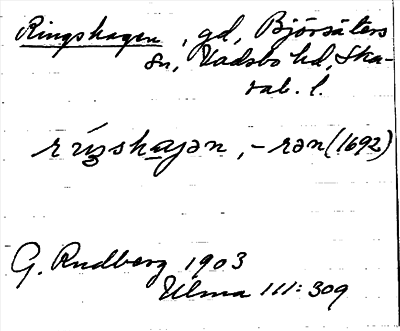 Ringshagen, gd, Björsäters
sn, Vadsbo hd, Ska-
rab. l.
rı́ŋshaγən, -rən (1692)
G. Rudberg 1903
Ulma 111:309